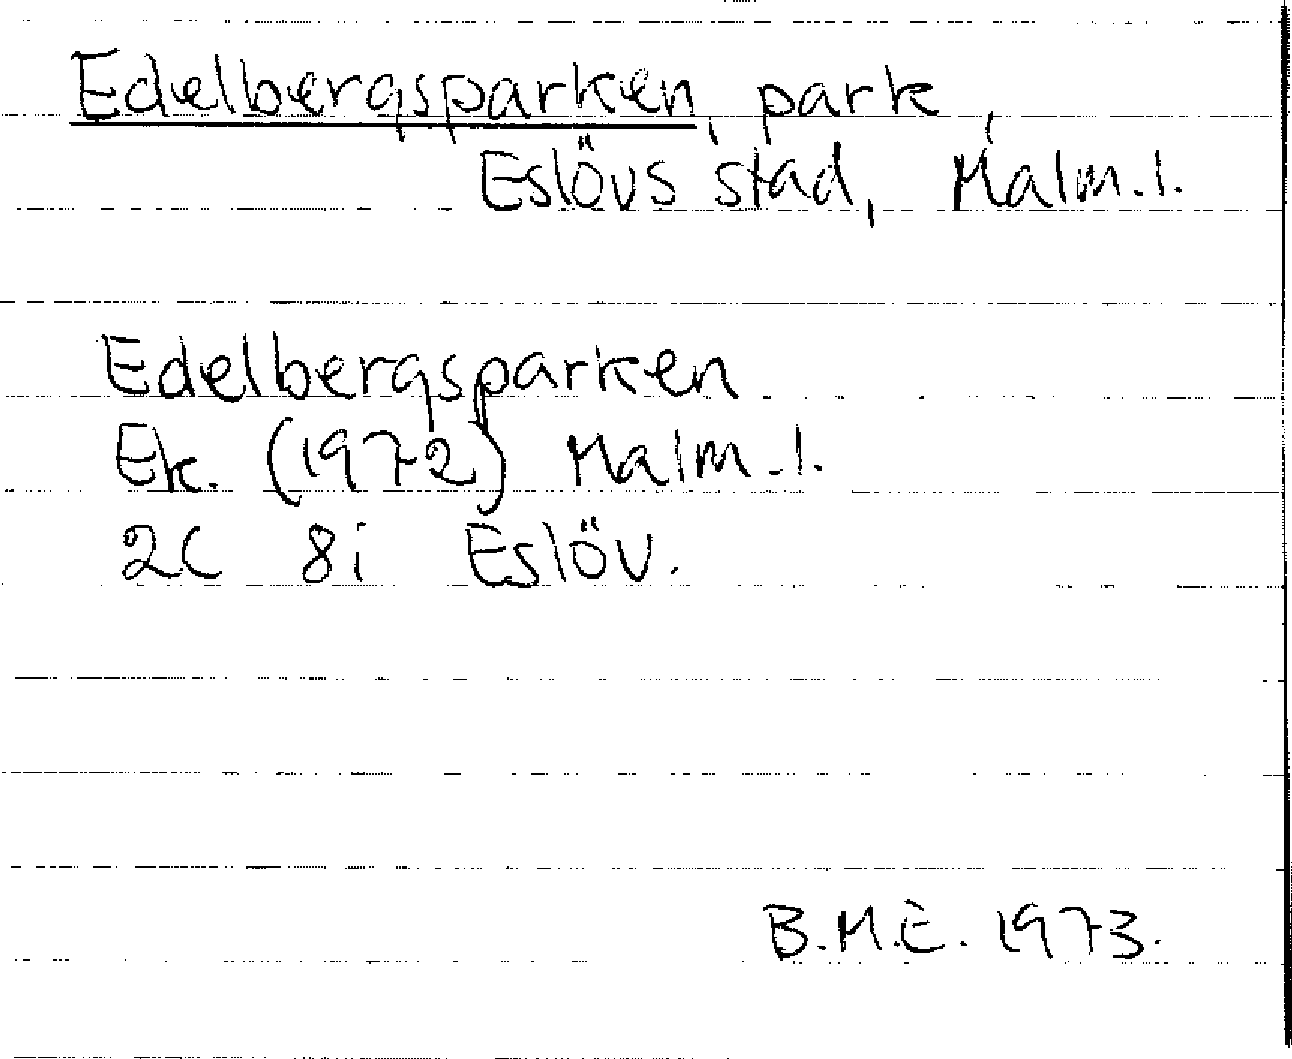 Edelbergsparken, park,
Eslövs stad, Malm.l.
Edelbergsparken
Ek. (1972) Malm.l.
2C 8i Eslöv.
B.M.E. 1973.